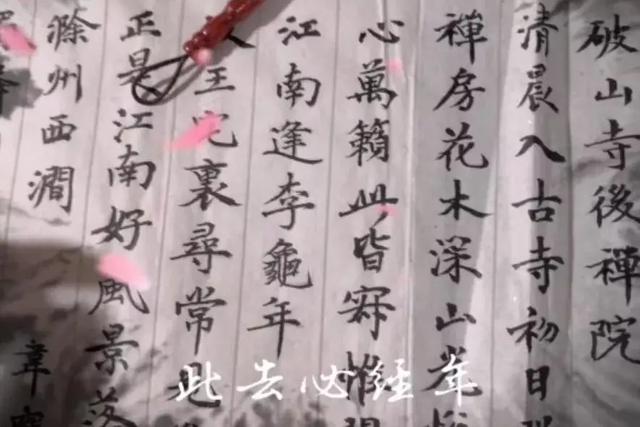 破山寺後禪院
清晨入古寺初日
禪房花木深山光
心萬籟此皆寂惟
江南逢李龜年
王宅裏尋常見
正是江南好風景落
滁州西澗 韋
此去必經年